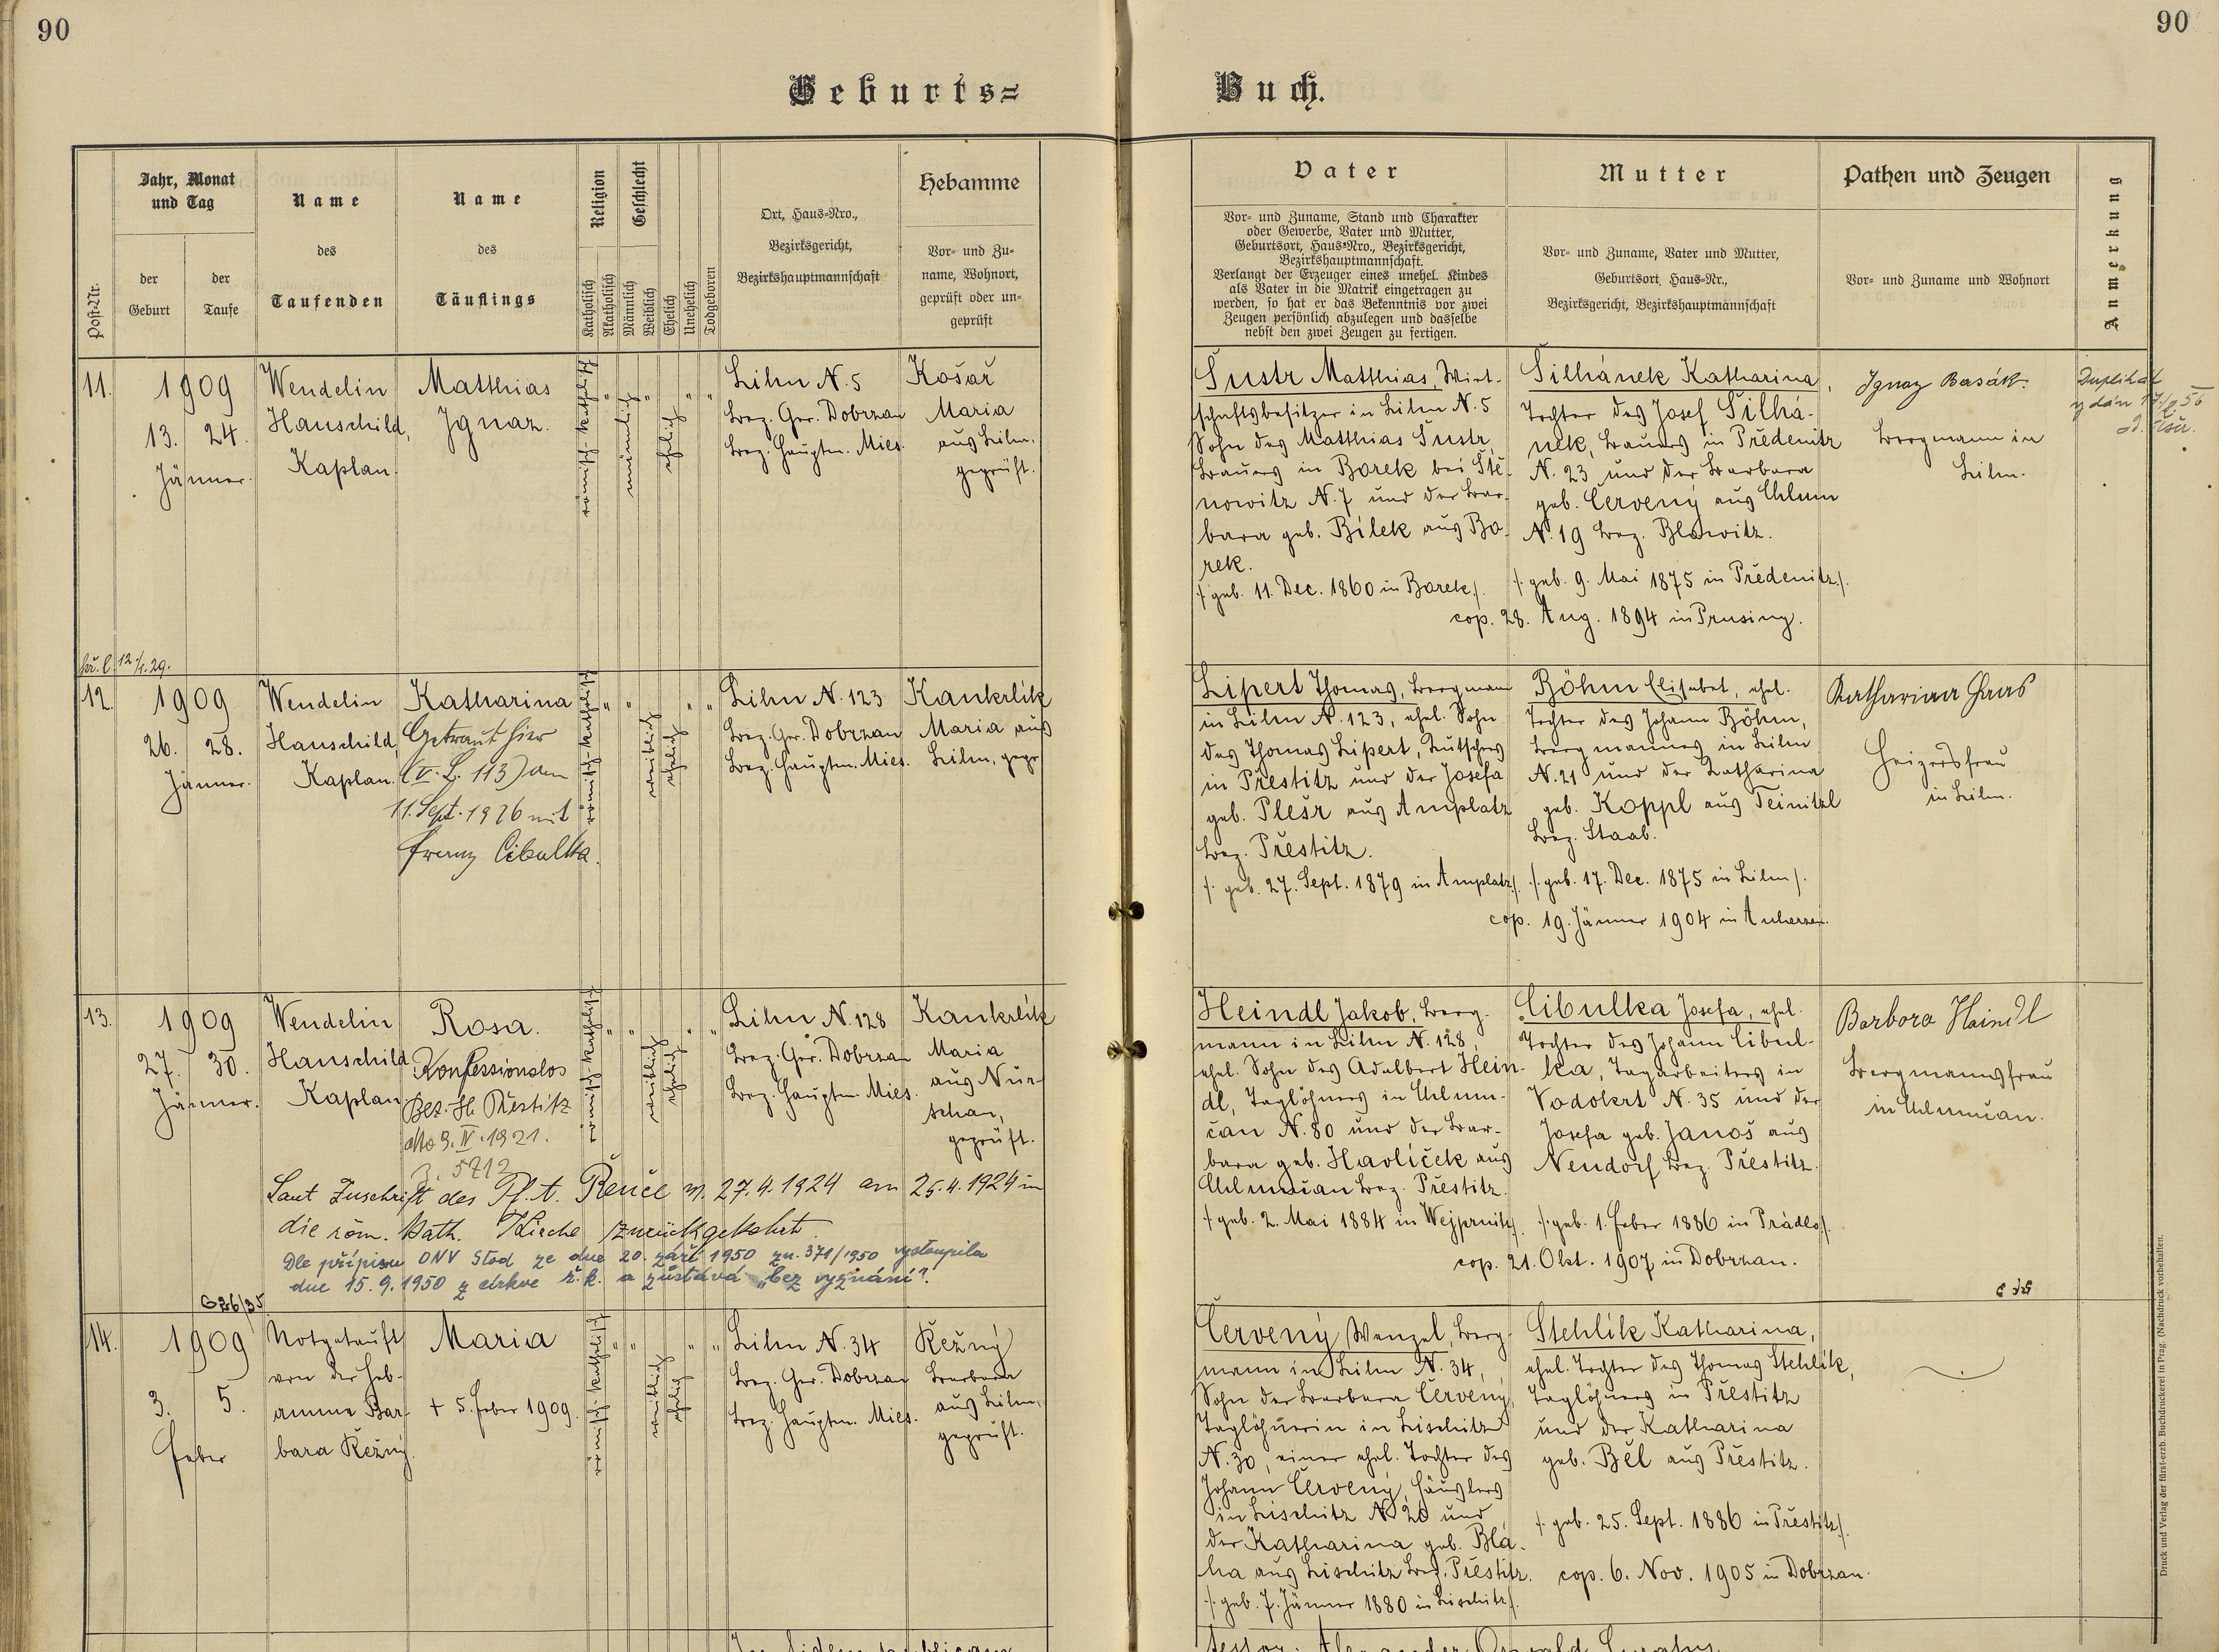 90
90
Geburts=
Buch.
Post-Nr.
Jahr, Monat
und Tag
der
Geburt
der
Taufe
Name
des
Taufenden
Name
des
Täuflings
Religion
Katholisch
Akatholisch
Geschlecht
Männlich
Weiblich
Ehelich
Unehelich
Todgeboren
Ort, Haus=Nro.,
Bezirksgericht,
Bezirkshauptmannschaft
Hebamme
Vor= und Zu=
name, Wohnort,
geprüft oder un=
geprüft
Vater
Vor= und Zuname, Stand und Charakter
oder Gewerbe, Vater und Mutter,
Geburtsort, Haus=Nro., Bezirksgericht,
Bezirkshauptmannschaft.
Verlangt der Erzeuger eines unehel. Kindes
als Vater in die Matrik eingetragen zu
werden, so hat er das Bekenntnis vor zwei
Zeugen persönlich abzulegen und dasselbe
nebst den zwei Zeugen zu fertigen.
Mutter
Vor= und Zuname, Vater und Mutter,
Geburtsort, Haus=Nr.,
Bezirksgericht, Bezirkshauptmannschaft
Pathen und Zeugen
Vor= und Zuname und Wohnort
Anmerkung
11.
1909
13. 24.
Jänner.
Wendelin
Hauschild,
Kaplan.
Matthias
Ignaz.
römisch-katholisch
männlich
ehelich
Lihn N. 5
Bez. Ger. Dobrzan
Bez. Hauptm. Mies.
Košař
Maria
aus Lihn,
geprüft.
Šustr Matthias, Wirt-
schaftsbesitzer in Lihn N. 5
Sohn des Matthias Šustr,
Bauers in Borek bei Ště-
nowitz N. 7 und der Bar-
bara geb. Bílek aus Bo-
rek.
/: geb. 11. Dec. 1860 in Borek :/.
Šilhánek Katharina,
Tochter des Josef Šilhá-
nek, Bauers in Předenitz
N. 23 und der Barbara
geb. Červený aus Chlum
N. 19 Bez. Blowitz.
/: geb. 9. Mai 1875 in Předenitz :/.
cop. 28. Aug. 1894 in Prusiny.
Ignaz Basák.
Bergmann in
Lihn.
Duplikát
12/1.29.
12.
1909
26. 28.
Jänner.
Wendelin
Hauschild,
Kaplan.
Katharina
Getraut hier
(V. L. 113) am
11. Sept. 1926 mit
Franz Cibulka.
römisch-katholisch
weiblich
ehelich
Lihn N. 123
Bez. Ger. Dobrzan
Bez. Hauptm. Mies.
Kankrlík
Maria aus
Lihn, gepr.
Lipert Thomas, Bergmann
in Lihn N. 123, ehel. Sohn
des Thomas Lipert, Kutschers
in Přestitz und der Josefa
geb. Plešr aus Amplatz
Bez. Přestitz.
/: geb. 27. Sept. 1879 in Amplatz :/.
Böhm Elisabet, ehel.
Tochter des Johann Böhm,
Bergmannes in Lihn
N. 21 und der Katharina
geb. Koppl aus Teinitzl
Bez. Staab.
/: geb. 17. Dec. 1875 in Lihn :/.
cop. 19. Jänner 1904 in Auherzen.
Katharina Haas
Heizersfrau
in Lihn.
13.
1909
27. 30.
Jänner.
Wendelin
Hauschild
Kaplan
Rosa.
Konfessionslos
Bez. H. Přestitz
dto 9. IV. 1921.
Z. 5712
römisch-katholisch
weiblich
ehelich
Lihn N. 128
Bez. Ger. Dobrzan
Bez. Hauptm. Mies.
Kankrlík
Maria
aus Nür-
schan,
geprüft.
Laut Zuschrift des Pf. A. Řenče v. 27.4.1924 am 25.4.1924 in
die röm. kath. Kirche zurückgekehrt.
Dle přípisu ONV Stod ze dne 20. září 1950 zn. 371/1950 vystoupila
dne 15.9.1950 z církve ř.k. a zůstává „bez vyznání".
Heindl Jakob, Berg-
mann in Lihn N. 128,
ehel. Sohn des Adalbert Hein-
dl, Taglöhners in Chlum-
čan N. 80 und der Bar-
bara geb. Havlíček aus
Chlumčan Bez. Přestitz.
/: geb. 2. Mai 1884 in Wejprnitz :/.
Cibulka Josefa, ehel.
Tochter des Johann Cibul-
ka, Tagarbeiters in
Vodokrt N. 35 und der
Josefa geb. Janoš aus
Neudorf Bez. Přestitz.
/: geb. 1. Feber 1886 in Prádlo :/.
cop. 21. Okt. 1907 in Dobrzan.
Barbora Haindl
Bergmannsfrau
in Chlumčan.
626/35
14.
1909
3. 5.
Feber
Notgetauft
von der Heb-
amme Bar-
bara Řežný.
Maria
+ 5. Feber 1909.
römisch-katholisch
weiblich
ehelich
Lihn N. 34
Bez. Ger. Dobrzan
Bez. Hauptm. Mies.
Řežný
Barbara
aus Lihn,
geprüft.
Červený Wenzel, Berg-
mann in Lihn N. 34,
Sohn der Barbara Červený,
Taglöhnerin in Lischitz
N. 30, einer ehel. Tochter des
Johann Červený, Häuslers
in Lischitz N. 20 und
der Katharina geb. Blá-
ha aus Lischitz Bez. Přestitz.
/: geb. 7. Jänner 1880 in Lischitz :/.
Stehlík Katharina,
ehel. Tochter des Thomas Stehlík,
Taglöhners in Přestitz
und der Katharina
geb. Běl aus Přestitz.
/: geb. 25. Sept. 1886 in Přestitz :/.
cop. 6. Nov. 1905 in Dobrzan.
Druck und Verlag der fürst-erzb. Buchdruckerei in Prag. (Nachdruck vorbehalten.